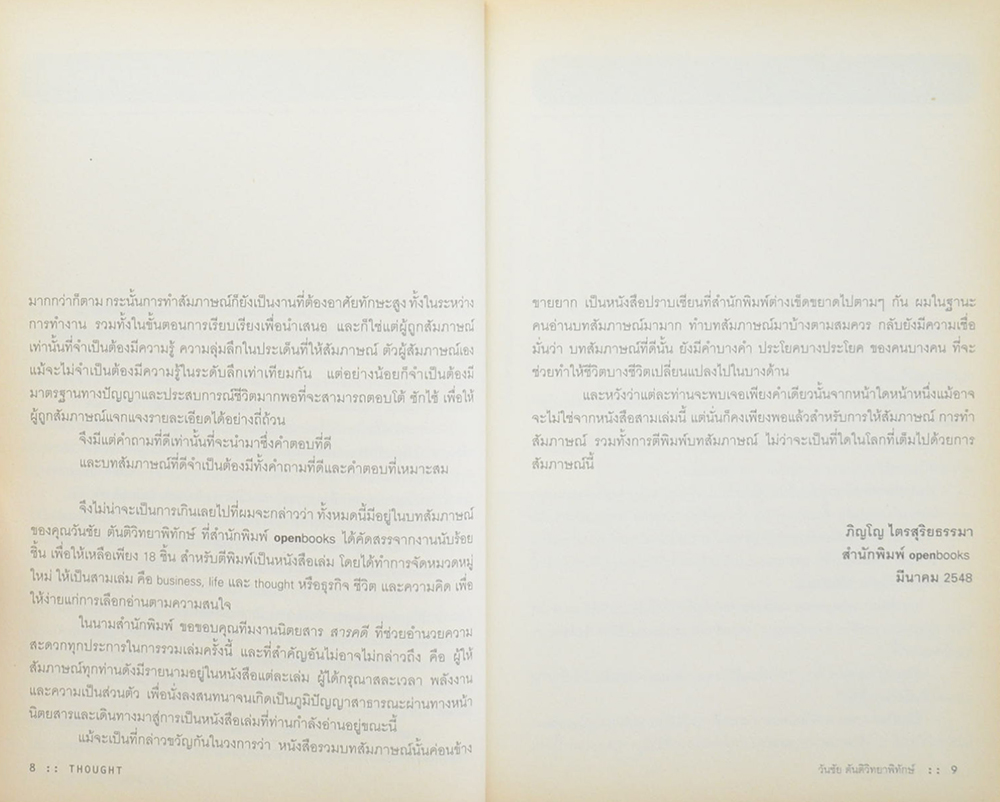 มากกว่าก็ตาม กระนั้นการทำสัมภาษณ์ก็ยังเป็นงานที่ต้องอาศัยทักษะสูง ทั้งในระหว่าง
การทำงาน รวมทั้งในขั้นตอนการเรียบเรียงเพื่อนำเสนอ และก็ใช่แต่ผู้ถูกสัมภาษณ์
เท่านั้นที่จำเป็นต้องมีความรู้ ความลุ่มลึกในประเด็นที่ให้สัมภาษณ์ ตัวผู้สัมภาษณ์เอง
แม้จะไม่จำเป็นต้องมีความรู้ในระดับลึกเท่าเทียมกัน แต่อย่างน้อยก็จำเป็นต้องมี
มาตรฐานทางปัญญาและประสบการณ์ชีวิตมากพอที่จะสามารถตอบโต้ ซักไซ้ เพื่อให้
ผู้ถูกสัมภาษณ์แจกแจงรายละเอียดได้อย่างถี่ถ้วน
จึงมีแต่คำถามที่ดีเท่านั้นที่จะนำมาซึ่งคำตอบที่ดี
และบทสัมภาษณ์ที่ดีจำเป็นต้องมีทั้งคำถามที่ดีและคำตอบที่เหมาะสม
จึงไม่น่าจะเป็นการเกินเลยไปที่ผมจะกล่าวว่า ทั้งหมดนี้มีอยู่ในบทสัมภาษณ์
ของคุณวันชัย ตันติวิทยาพิทักษ์ ที่สำนักพิมพ์ openbooks ได้คัดสรรจากงานนับร้อย
ชิ้น เพื่อให้เหลือเพียง 18 ชิ้น สำหรับตีพิมพ์เป็นหนังสือเล่ม โดยได้ทำการจัดหมวดหมู่
ใหม่ ให้เป็นสามเล่ม คือ business, life และ thought หรือธุรกิจ ชีวิต และความคิด เพื่อ
ให้ง่ายแก่การเลือกอ่านตามความสนใจ
ในนามสำนักพิมพ์ ขอขอบคุณทีมงานนิตยสาร สารคดี ที่ช่วยอำนวยความ
สะดวกทุกประการในการรวมเล่มครั้งนี้ และที่สำคัญอันไม่อาจไม่กล่าวถึง คือ ผู้ให้
สัมภาษณ์ทุกท่านดังมีรายนามอยู่ในหนังสือแต่ละเล่ม ผู้ได้กรุณาสละเวลา พลังงาน
และความเป็นส่วนตัว เพื่อนั่งลงสนทนาจนเกิดเป็นภูมิปัญญาสาธารณะผ่านทางหน้า
นิตยสารและเดินทางมาสู่การเป็นหนังสือเล่มที่ท่านกำลังอ่านอยู่ขณะนี้
แม้จะเป็นที่กล่าวขวัญกันในวงการว่า หนังสือรวมบทสัมภาษณ์นั้นค่อนข้าง
8 :: THOUGHT
ขายยาก เป็นหนังสือปราบเซียนที่สำนักพิมพ์ต่างเข็ดขยาดไปตามๆ กัน ผมในฐานะ
คนอ่านบทสัมภาษณ์มามาก ทำบทสัมภาษณ์มาบ้างตามสมควร กลับยังมีความเชื่อ
มั่นว่า บทสัมภาษณ์ที่ดีนั้น ยังมีคำบางคำ ประโยคบางประโยค ของคนบางคน ที่จะ
ช่วยทำให้ชีวิตบางชีวิตเปลี่ยนแปลงไปในบางด้าน
และหวังว่าแต่ละท่านจะพบเจอเพียงคำเดียวนั้นจากหน้าใดหน้าหนึ่งแม้อาจ
จะไม่ใช่จากหนังสือสามเล่มนี้ แต่นั่นก็คงเพียงพอแล้วสำหรับการให้สัมภาษณ์ การทำ
สัมภาษณ์ รวมทั้งการตีพิมพ์บทสัมภาษณ์ ไม่ว่าจะเป็นที่ใดในโลกที่เต็มไปด้วยการ
สัมภาษณ์นี้
ภิญโญ ไตรสุริยธรรมา
สำนักพิมพ์ openbooks
มีนาคม 2548
วันชัย ตันติวิทยาพิทักษ์ :: 9